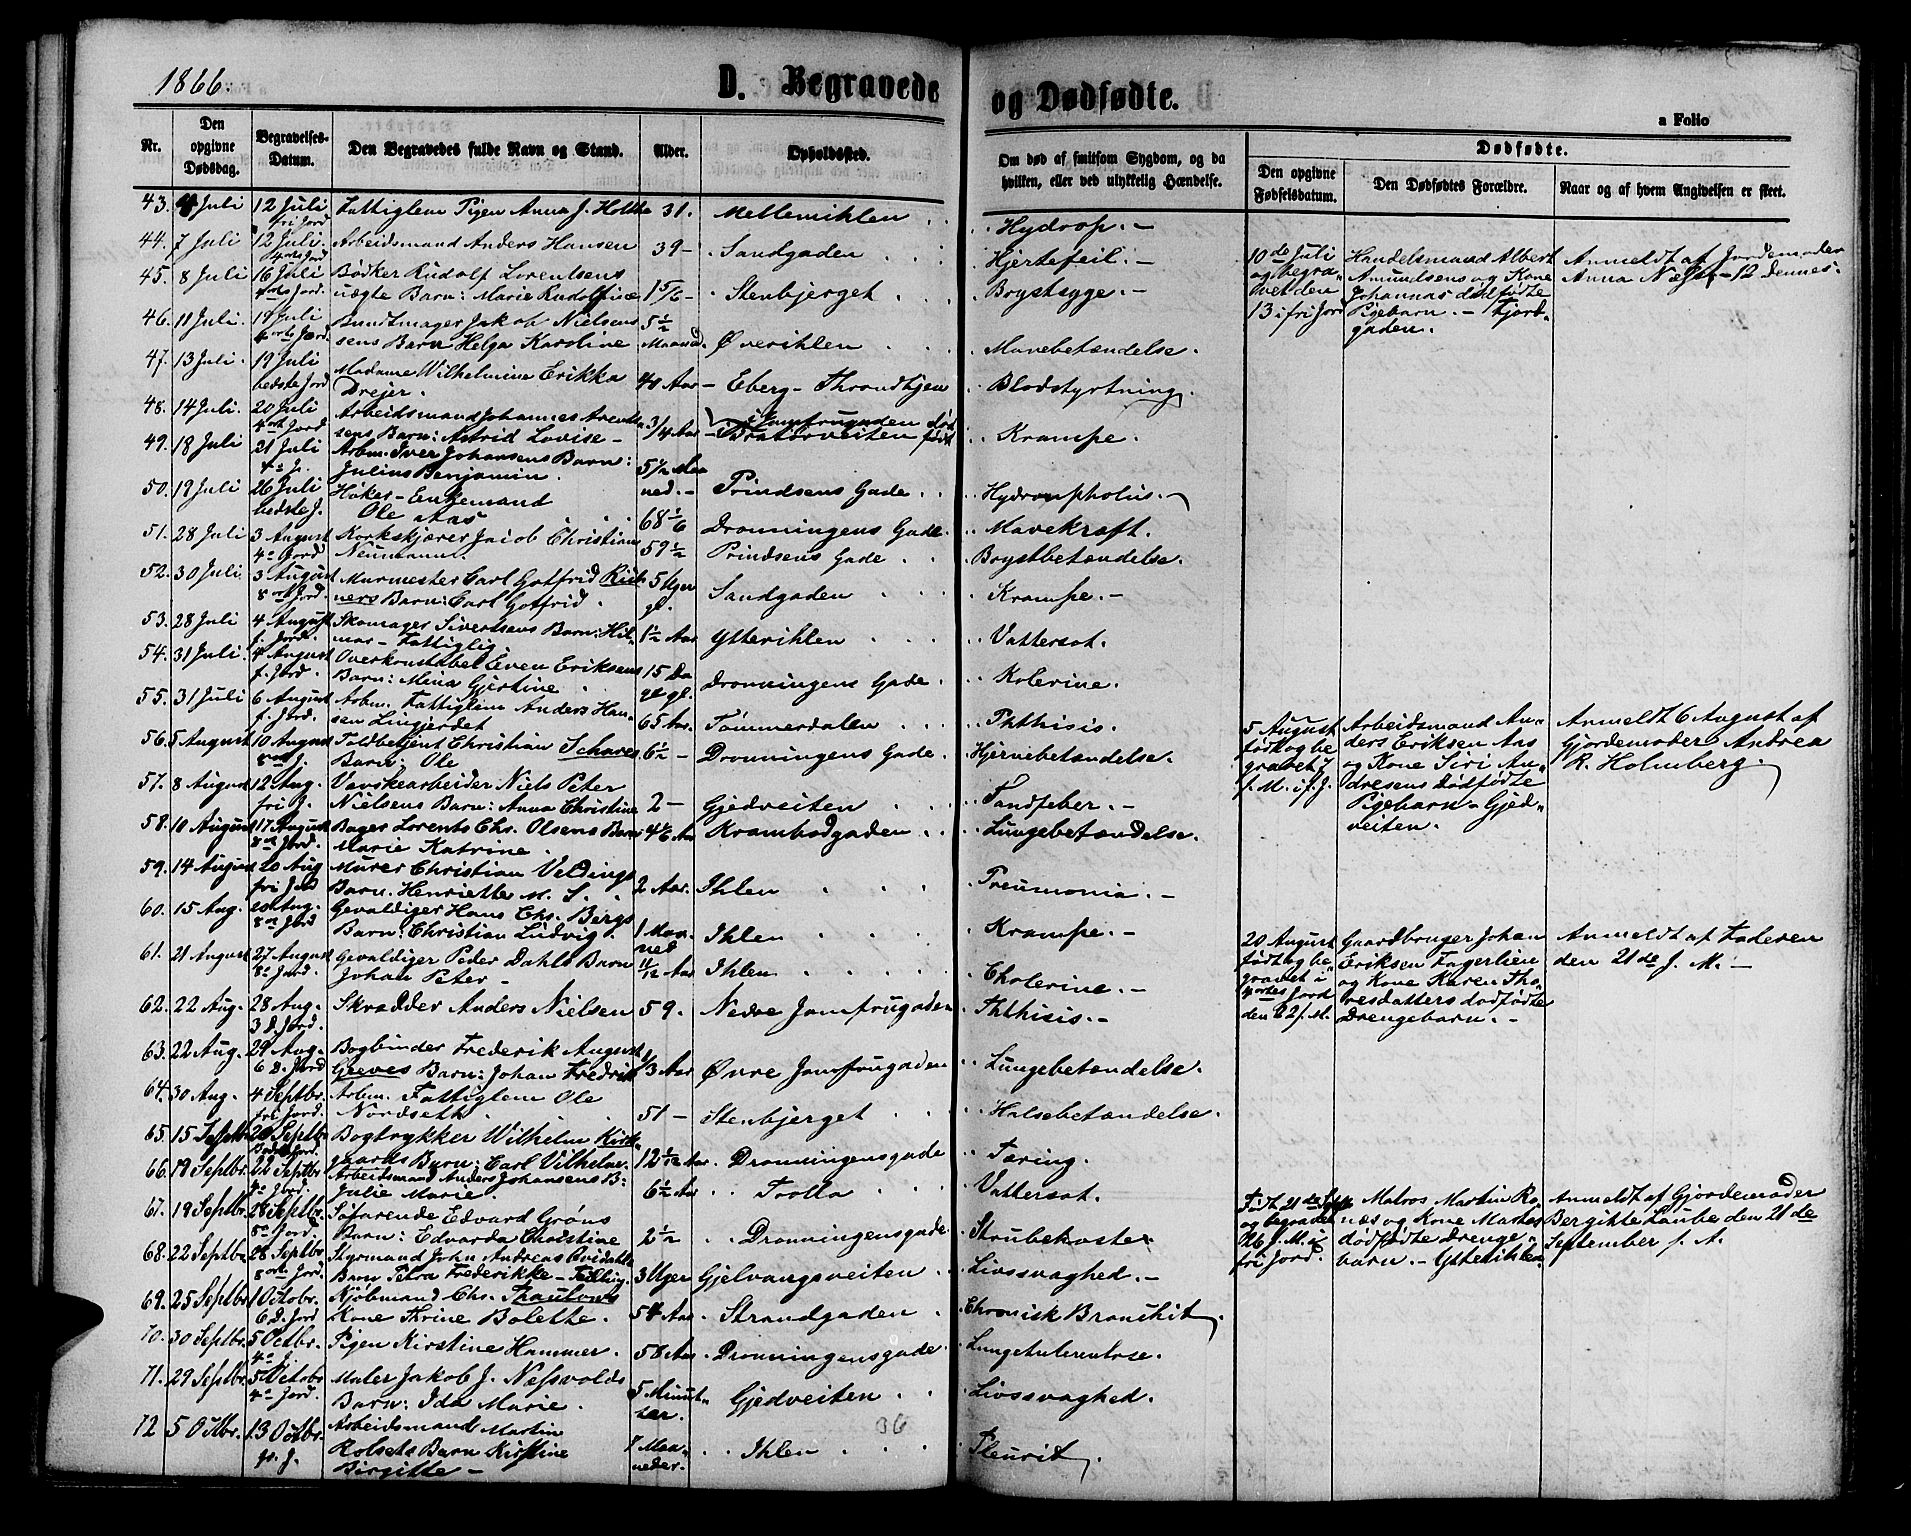 1866.
D. Begravede og Dødfødte.
a Folio
Nr.
Den opgivne Dødsdag.
Begravelses-Datum.
Den Begravedes fulde Navn og Stand.
Alder.
Opholdssted.
Om død af smitsom Sygdom, og da hvilken, eller ved ulykkelig Hændelse.
Dødfødte.
Den opgivne Fødselsdatum.
Den Dødfødtes Forældre.
Naar og af hvem Angivelsen er skeet.
43. 4 Juli 12 Juli fri Jord Fattiglem Pigen Anna J. Holthe 31. Mellemihlen Hydrop.-
44. 7 Juli 12 Juli. Jord Arbeidsmand Anders Hansen 39- Sandgaden Hjertefeil.-
45. 8 Juli 16 Juli Jord. Bødker Rudolf Lorentsens
uægte Barn: Marie Rudolfine 1 5/6 - Stenbjerget Brystsyge.-
46. 11 Juli. 17 Juli Jord. Buntmager Jakob Nielsens
sens Barn Helga Karoline 5 1/2 Maaned. Øverihlen Mavebetændelse.
47. 13 Juli. 19 Juli bedste Jord Madame Wilhelmine Erikka
Drejer. 40 Aar - Eberg - Throndhjem Blodstyrtning.
48. 14 Juli. 20 Juli Jord Arbeidsmand Johannes
sens Barn: Astrid Lovise - 3/4 Aar i Jomfrugaden død
Bratørveiten født Krampe.
49. 18 Juli 21 Juli Arbm. Iver Johansens Barn:
Julius Benjamin. 5 1/2 Maaned.- Prindsens Gade
50. 19 Juli 26 Juli bedste J. Høker - Enkemand
Ole Aas 68 1/6 Dronningens Gade. Mavekræft.
51. 28 Juli 3 August Jord Korkskjærer Jacob Christian
Neumann. 59 1/2 Prindsens Gade Brystbetændelse.
52. 30 Juli 3 August Jord. Murmester Carl Gotfrid
ners Barn: Carl Gotfrid. 5 Uger gl. Sandgaden Krampe.-
53. 28 Juli 4 August f. Jord. Skomager Sivertsens Barn: Hil-
mar - Fattiglig. 1 1/2 Aar Ytterihlen Vattersot.
54. 31 Juli. 4 August f. Jord. Overkonstabel Even Eriksens
Barn: Mina Gjertine 15 Dage gl. Dronningens Gade. Kolerine.
55. 31 Juli 6 August f. Jord. Arbm. Fattiglem Anders Han-
sen Lingjerdet 65 Aar. Tømmerdalen Phthisis.
56. 5 August 10 August J. Toldbetjent Christian
Barn: Ole 6 1/2 - Dronningens Gade. Hjernebetændelse.
57. 8 August 12 Aug. fri J. Værskearbeider Niels Peter
Nielsens Barn: Anna Christine 2 - Gjedveiten Tandfeber.-
58. 10 August 17 August Jord. Bager Lorents Chr. Olsens Barn
Marie Katrine. 4 1/6 Aar Krambodgaden Lungebetændelse.
59. 14 August 20 Aug fri Jord Murer Christian Veldings
Barn. Henriette M. S. 2 Aar. Ihlen Pneumonia.-
60. 15 Aug. 20 Aug. Jord Gevaldiger Hans Chr. Bergs
Barn: Christian Ludvig. 1 Maaned Ihlen Krampe.-
61. 21 August 27 August Jord. Gevaldiger Peder Dahls Barn
Johan Peter - 11/12 Aar Ihlen Cholerine.-
62. 22 Aug. 28 Aug. 3 D. Jord. Skrædder Anders Nielsen 59. Nedre Jomfrugaden Phthisis.-
63. 22 Aug. 29 Aug. 6 D. Jord Bogbinder Frederik August
Greves Barn: Johan Fredrik 1/3 Aar Øvre Jomfrugaden Lungebetændelse.
64. 30 Aug. 4 Septbr. fri Jord. Arbm. Fattiglem Ole
Nordseth. 51 - Stenbjerget Halsebetændelse.
65. 15 Septbr 20 Septbr Jord. Bogtrykker Wilhelm Kirke-
gaards Barn: Carl Vilhelm. 12 1/12 Aar. Dronningensgade Tæring.
66. 19 Septbr. 22 Septbr Jord. Arbeidsmand Anders Johansens B:
Julie Marie. 6 1/2 Aar Trolla Vattersot.
67. 19 Septbr. 28 Septbr. Jord. Søfarende Edvard Grøns
Barn: Edvarda Christine 2 1/2 Dronningensgade Strubehoste.
68. 22 Septbr. 28 Septbr. Jord. Styrmand John Andreas
Barn Petra Frederikke - 3 Uger Gjelvangsveiten Livssvaghed.-
69. 25 Septbr. 1 Octobr. 6 D. Jord Kjøbmand Chr. Thaulows
Kone Thrine Bolette. 54 Aar Strandgaden Chronisk Bronchit.
70. 30 Septbr. 5 Octbr. Pigen Kirstine Hammer. 58 Aar Dronningensgade. Lungetuberculose.
71. 29 Septbr. 5 Octobr Jord. Maler Jakob J. Næssvolds
Barn: Ida Marie. 5 Minutter. Gjedveiten Livssvaghed.
72 5 Octbr. 13 Octbr. J. Arbeidsmand Martin
Rolsets Barn Kirstine
Birgitte - 8 Maaneder. Ihlen Pleurit.
36
10de Juli
og begra-
vet den
13 i fri Jord
Handelsmand Albert
Amundsens og Kone
Johannas dødfødte
Pigebarn.- Fjord-
gaden.
Anmeldt af Jordemoder
Anna Næss - 12 dennes.
5 August
født og be-
gravet 7
f. M. i f. J.
Arbeidsmand An-
ders Eriksen Aas
og Kone Siri An-
dresens Dødfødte
Pigebarn - Gjed-
veiten.
Anmeldt 6 August af
Gjordemoder Andrea
R. Holmberg.
20 August
født og be-
gravet i
Jord
den 22 f. M.
Gaardbruger Johan
Eriksen Fagerlien
og Kone Karen Tho-
resdatters dødfødte
Drengebarn.-
Anmeldt af Faderen
den 21de f. M.-
Født 21de Septbr
og begravet
26 f. M. i
fri Jord.
Matros Martin Ro-
næs og Kone Marthes
dødfødte Drenge-
barn.- Ytterihlen
Anmeldt af Gjordemoder
Bergitte Laube den 21de
September f. A.